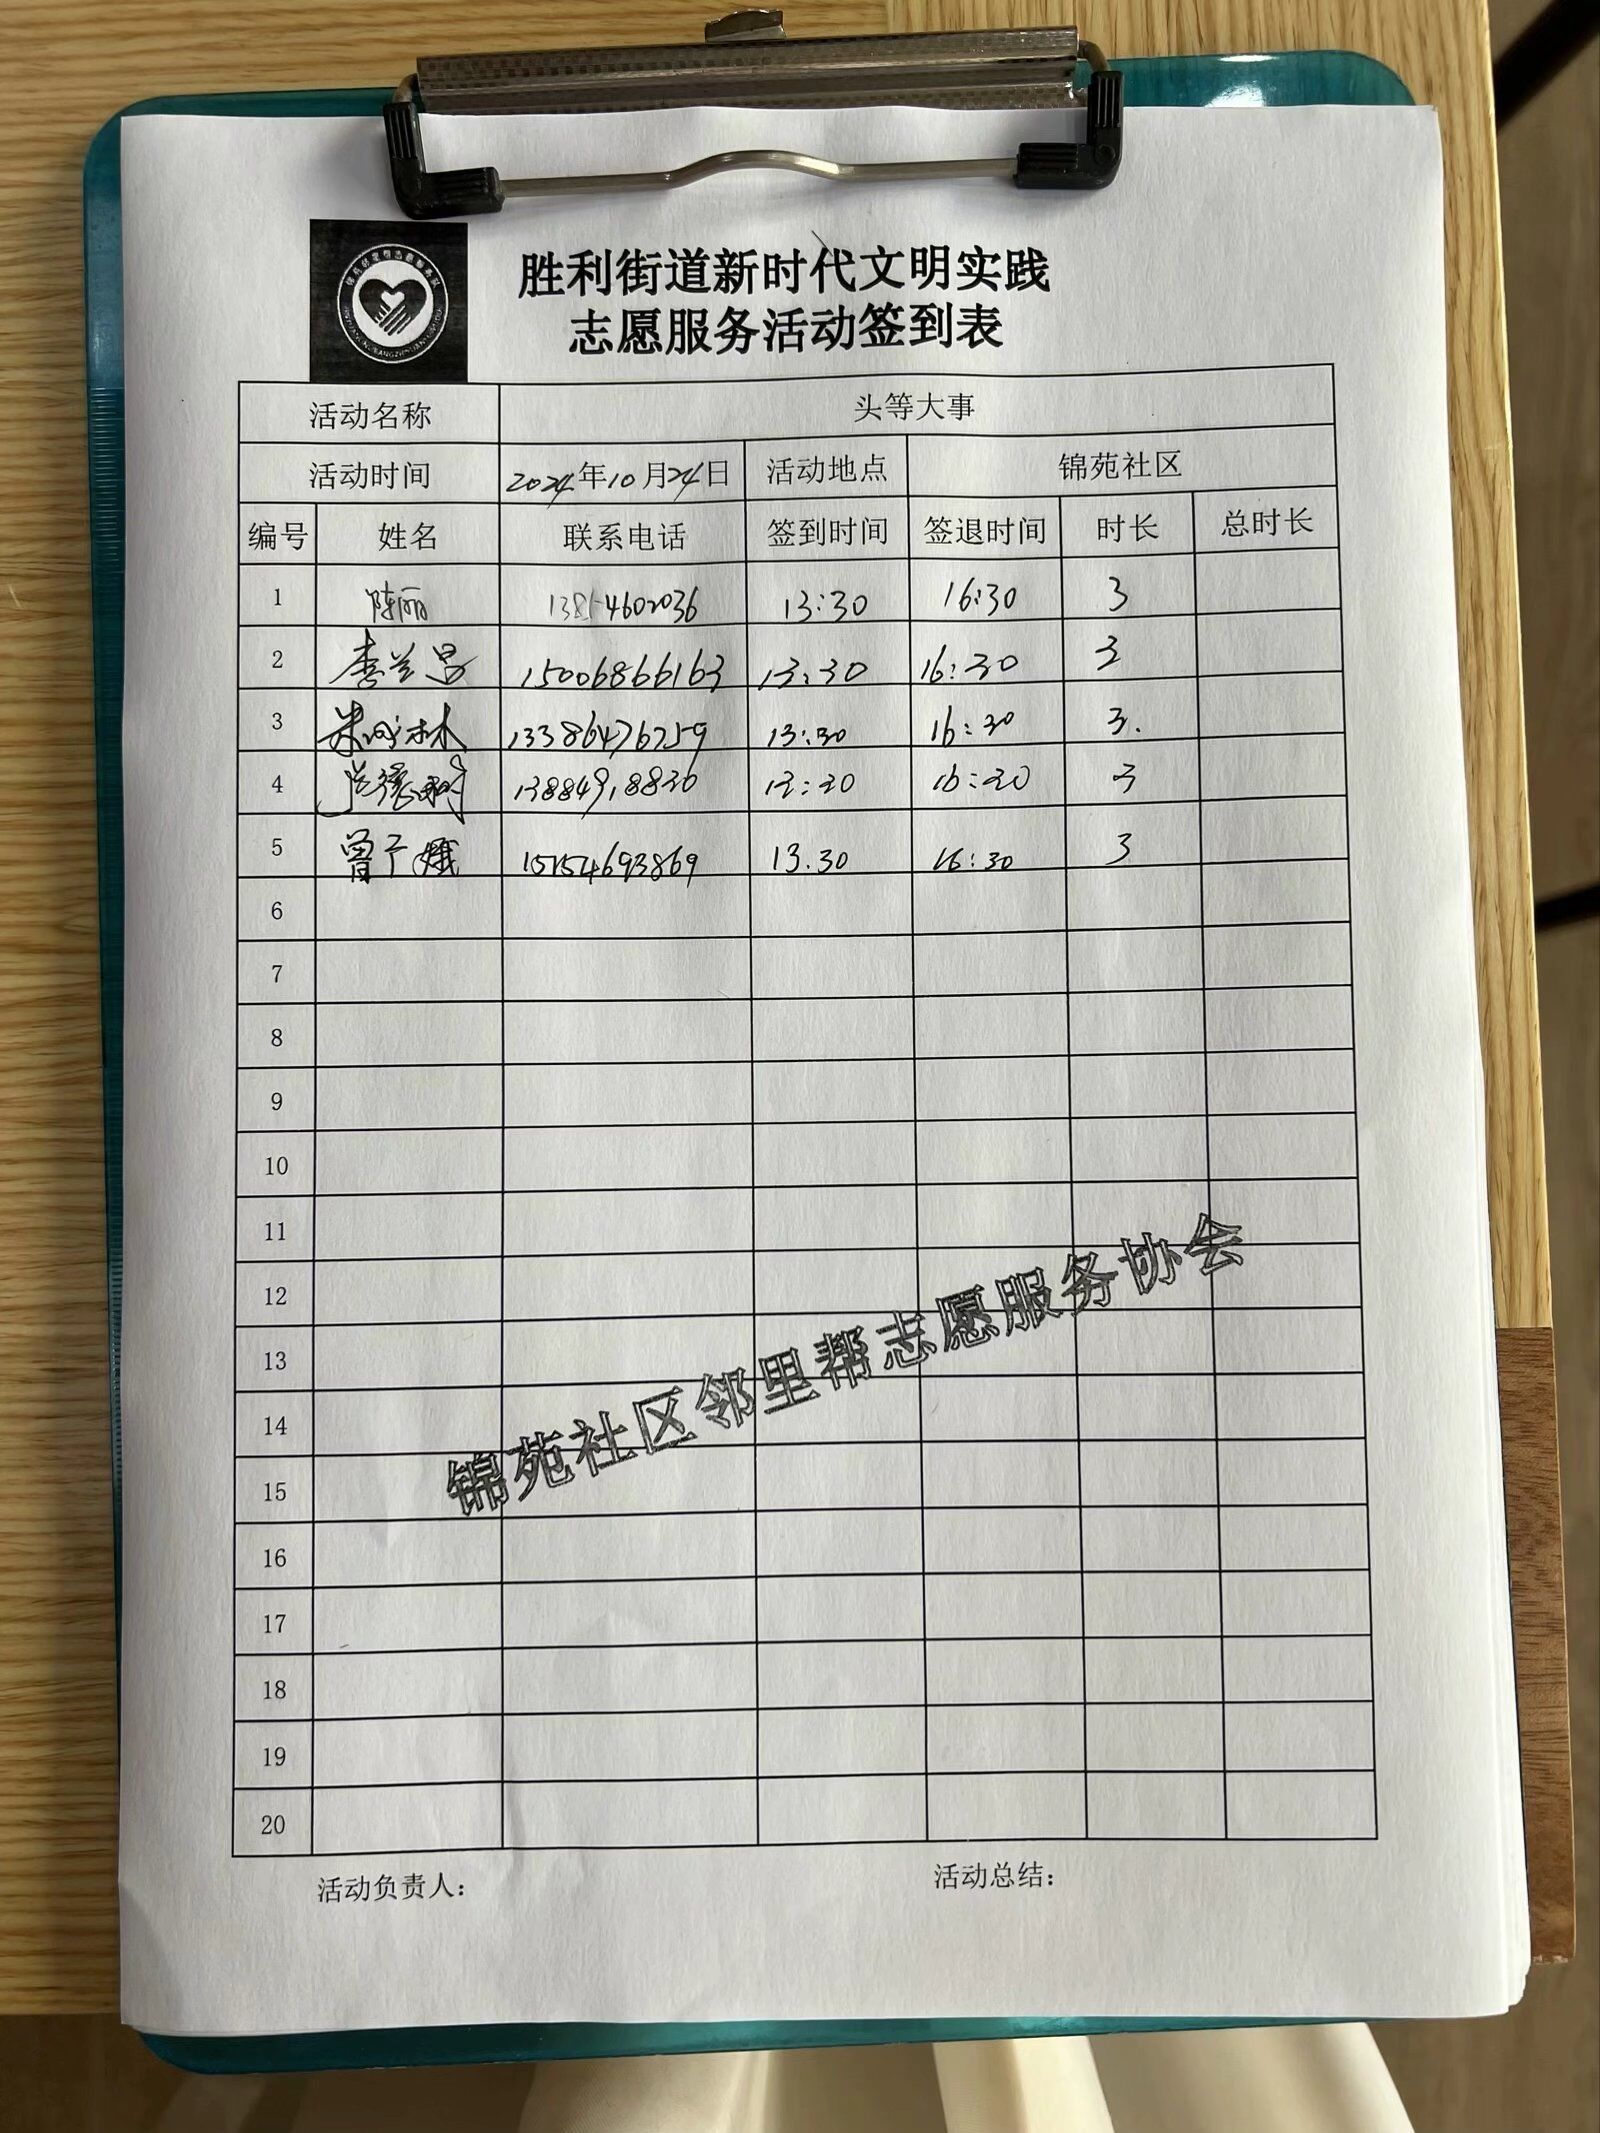 胜利街道新时代文明实践
志愿服务活动签到表
活动名称 头等大事
活动时间 2024年10月24日 活动地点 锦苑社区
编号 姓名 联系电话 签到时间 签退时间 时长 总时长
1 陈丽 13854602036 13:30 16:30 3
2 李兰昌 15006866163 13:30 16:30 3
3 13386476759 13:30 16:30 3.
4 13884918830 13:30 16:30 3
5 曾广娥 15154693869 13.30 16:30 3
6
7
8
9
10
11
12
13
14
15
16
17
18
19
20
锦苑社区邻里帮志愿服务协会
活动负责人： 活动总结：